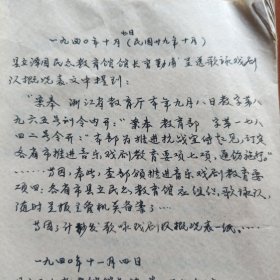 七日
一九四〇年十月（民国廿九年十月）
县立泽国民众教育馆馆长
呈送歌咏戏剧
队概况表文中提到：
“案奉 浙江省教育厅本年九月八日教字第八
九六五号训令内开：“案奉 教育部 字第一七八
四二号令开：“本部为推进抗战宣传起见，订定
各省市推进音乐戏剧教育要项七项，通饬施行。”
……等因；奉此，查部颁推进音乐戏剧教育要
项四：各省市县立民众教育馆应组织歌咏队，
随时呈报主管机关备查……
等因；计 歌咏戏剧队概况表一纸。……
一九四〇年十一月四日